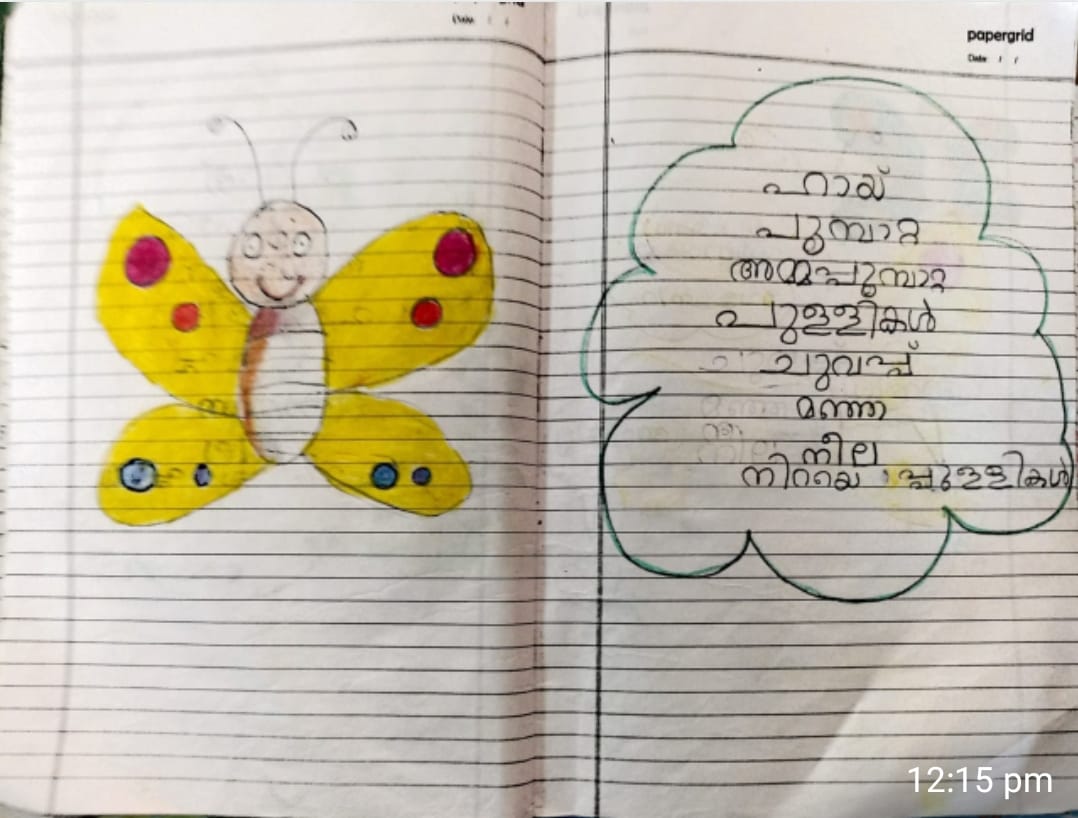 papergrid
Date / /
Date / /
ഹായ്
പൂമ്പാറ്റ
അമ്മപ്പൂമ്പാറ്റ
പുള്ളികൾ
ചുവപ്പ്
മഞ്ഞ
നീല
നിറയെ പുള്ളികൾ
12:15 pm